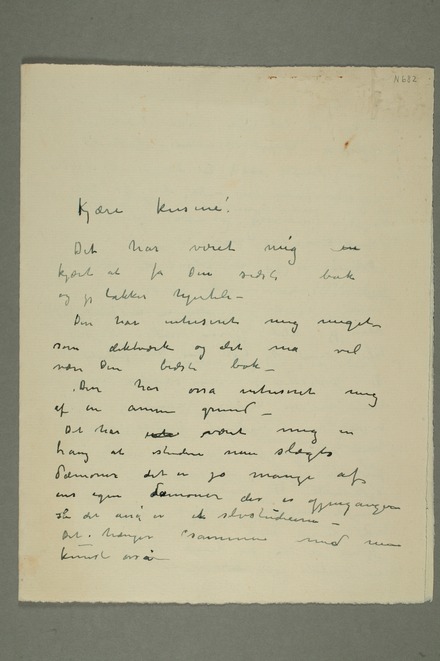 N 682
Kjære kusine!
Det har været mig en
kjært at få Din sidste bok
og jeg takker hjerteligt –
Den har interesseret mig meget
som diktværk og det må vel
være Din bedste bok –
Den har også interesseret mig
af en annen grund –
Det har været mig en
trang at studere min slægts
Dæmoner det er jo mange af
ens egne dæmoner der er gjengangere
så det også er et selvstudium –
Det hænger sammen med min
kunst også